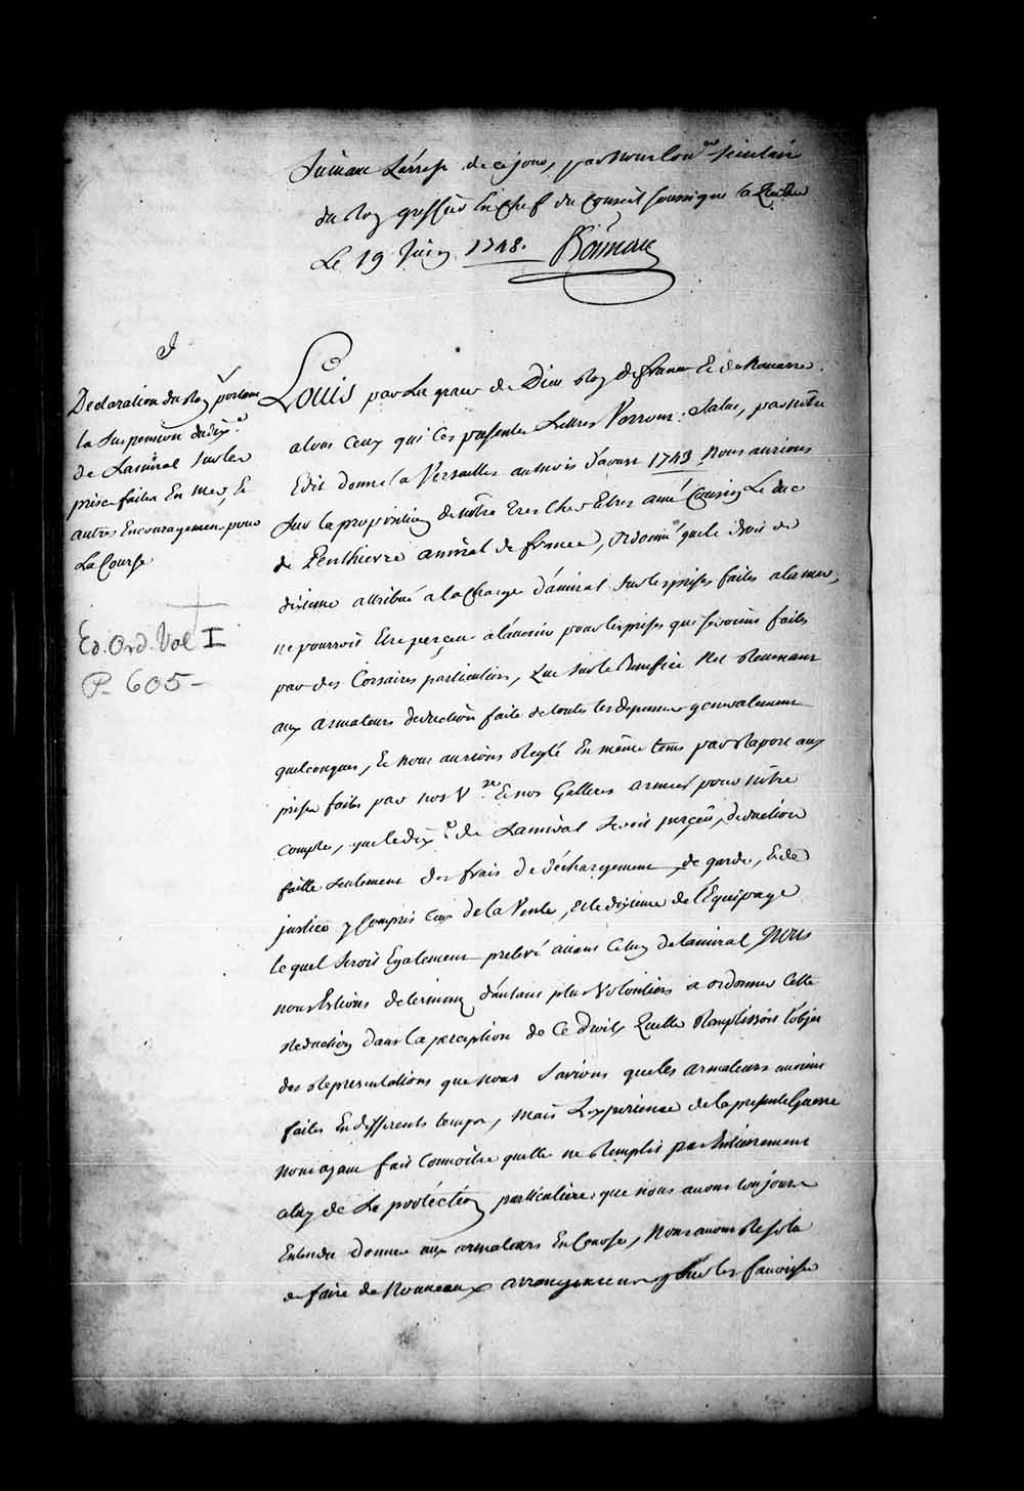 Suivant L'arrest de ce jour, par nous Con.er secretaire
du Roy greffier En Chef du Conseil Superieur a Quebec
Le 19 Juin 1748. Boisseau
Declaration du Roy portant
la Suspension du dix.e
de Lamiral Sur les
prises faites En Mer, Et
autres Encouragemens pour
La Course
Ed. Ord. Vol I
P. 605 -
Louis par La grace de Dieu Roy de france Et de Navarre.
a tous Ceux qui Ces presentes Lettres Verront: Salut, par nôtre
Edit donné a Versailles au mois d'aoust 1743 Nous aurions
Sur la proposition de nôtre tres Cher Et bien amé Cousin Le duc
de Penthievre amiral de france, ordonné que le droit de
dixieme attribué a la Charge d'amiral Sur les prises faites a la mer,
ne pourroit Etre perçeu a l'avenir pour les prises qui Seroient faites
par des Corsaires particuliers, Que Sur le Benefice Net Revenant
aux armateurs deduction faite de toutes les depenses generalement
quelconques, Et nous aurions Reglé En même tems par Raport aux
prises faites par nos V.aux Et nos Galleres armés pour nôtre
compte, que le dix.e de Lamiral Seroit perçeu, deduction
faitte Seulement des frais de déchargement, de garde, Et de
justice y Compris Ceux de la Vente, Et le dixieme de l'Equipage
lequel Seroit Egalement prelevé avant Celuy de Lamiral Nous
nous Etions determiné d'autant plus Volontiers a ordonner Cette
Reduction dans la perception de Ce droit, Qu'elle Remplissoit l'objet
des Representations que nous Savions que les armateurs avoient
faites En differents temps, Mais L'experience de la presente Guerre
nous ayant fait Connoitre qu'elle ne Remplit pas Entierement
celuy de La protéction particuliere que nous avons toujours
Entendu donner aux armateurs En Course, Nous avons Resolu
de faire de Nouveaux arrangemens pour les favoriser